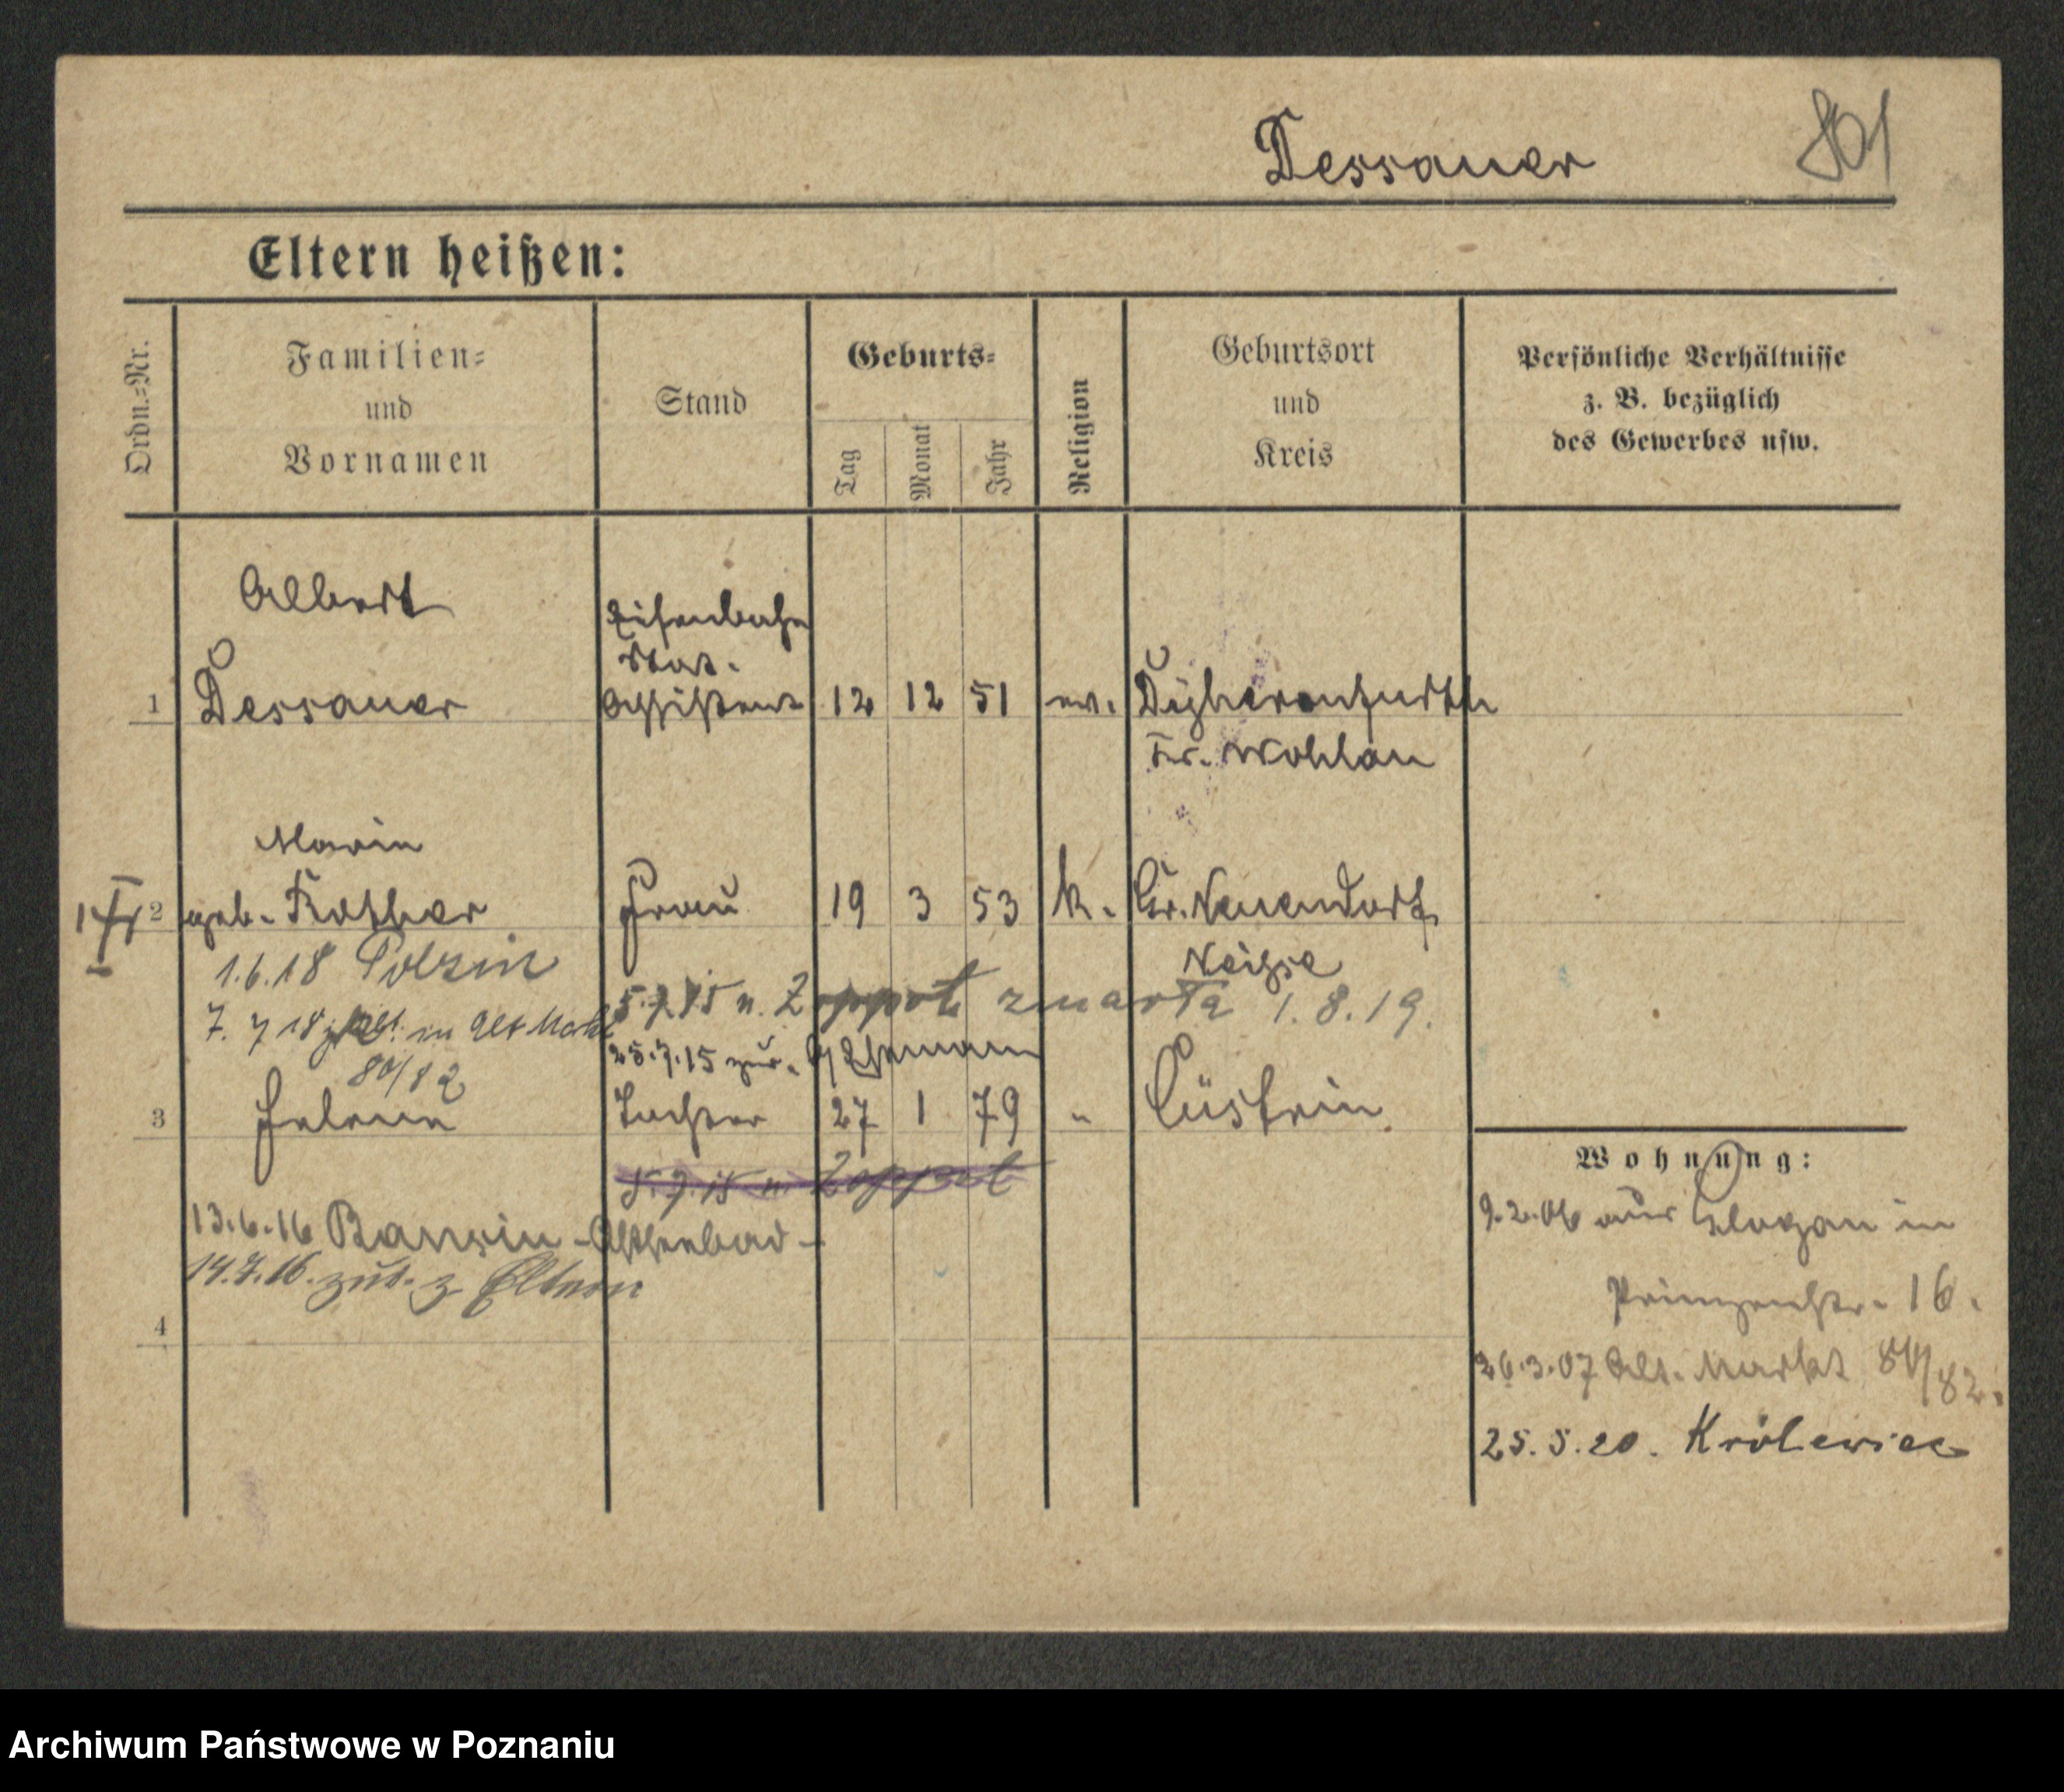 Dessauer 801
Eltern heißen:
Ordn.=Nr.
Familien=
und
Vornamen
Stand
Geburts=
Tag
Monat
Jahr
Religion
Geburtsort
und
Kreis
Persönliche Verhältnisse
z. B. bezüglich
des Gewerbes usw.
Albert
Eisenbahn
Stat.
1 Dessauer Assistent 12 12 51 ev. Dyhernfurth
Kr. Wohlau
Marie
2 geb. Rother Frau 19 3 53 k. Gr. Neuendorf
Neisse
1.6.18 Polzin
5.7.15 n. Zoppot zmarła 1.8.19.
7. 7 18 in Alt Markt
80/82
25.7.15 zur. z Ehemann
3 Helene Tochter 27 1 79 " Cüstrin
5.7.15 n. Zoppot
13.6.16 Bansin - Ostseebad -
14.7.16. zur. z. Eltern
4
Wohnung:
9.2.06 aus Glogau in
Prinzenstr. 16.
26.3.07 Alt. Markt 80/82.
25.5.20. Królewiec
Archiwum Państwowe w Poznaniu